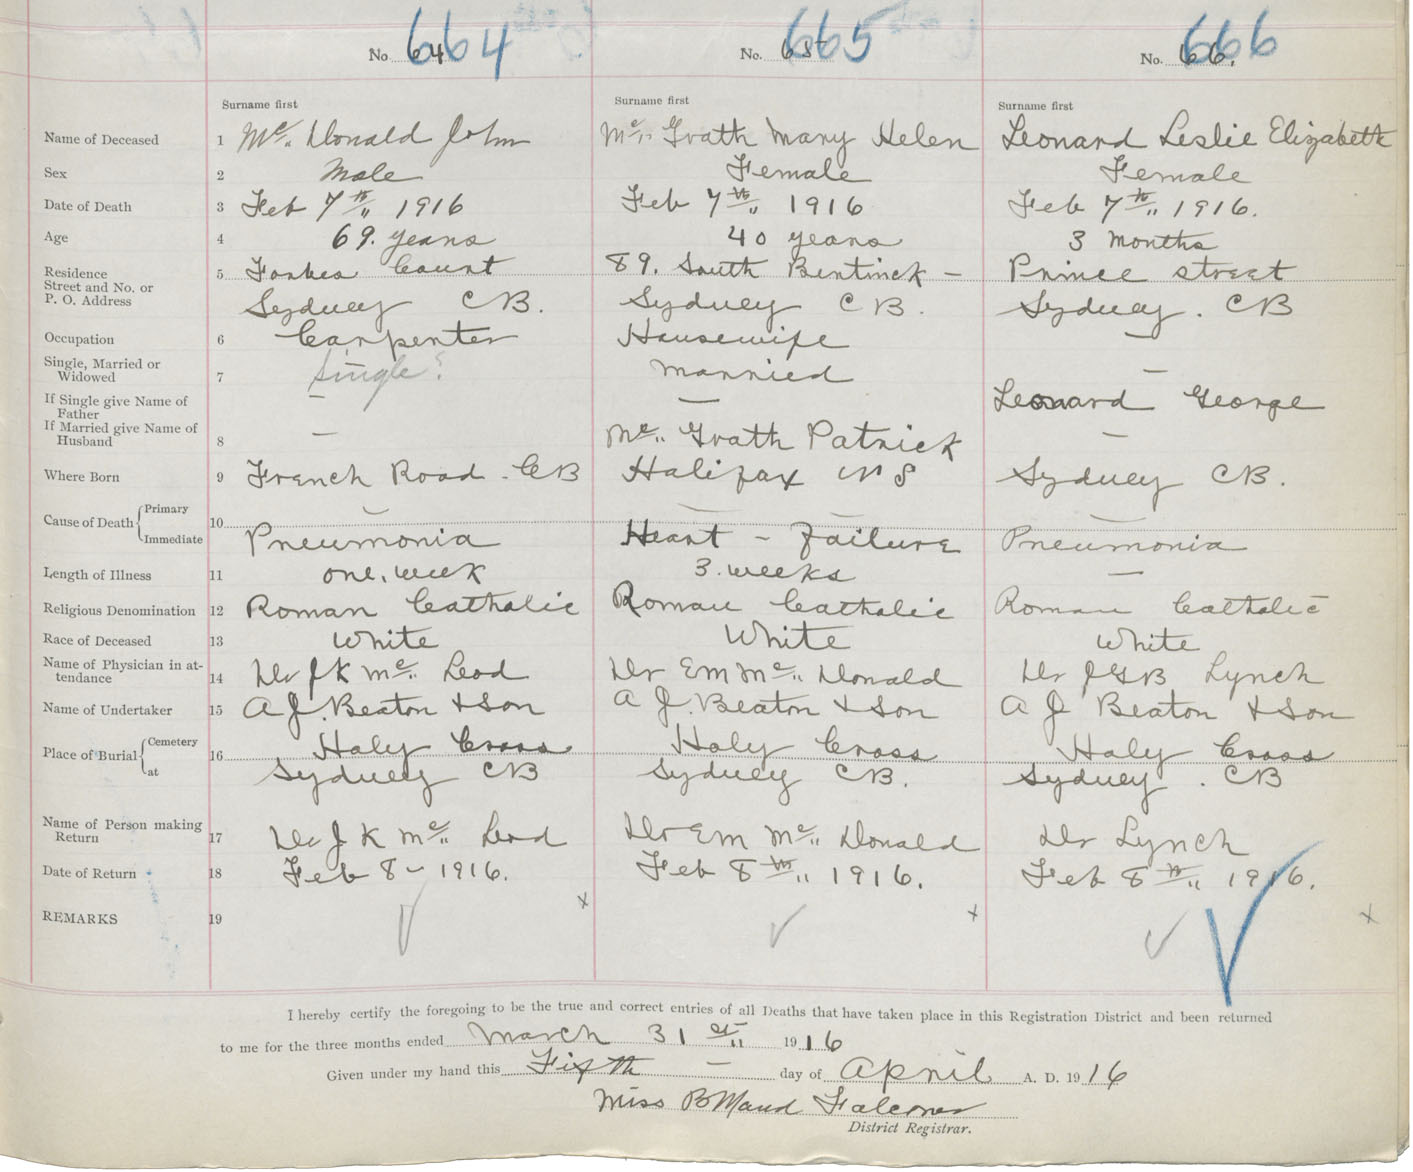 No. 64 664 No. 65 665 No. 66. 666
Surname first Surname first Surname first
Name of Deceased 1 Mc Donald John Mc Grath Mary Helen Leonard Leslie Elizabeth
Sex 2 Male Female Female
Date of Death 3 Feb 7th 1916 Feb 7th 1916 Feb 7th 1916.
Age 4 69. years 40 years 3 months
Residence 5 Forbes Court 89. South Bentinck - Prince street
Street and No. or
P. O. Address Sydney CB. Sydney CB. Sydney. CB
Occupation 6 Carpenter Housewife —
Single, Married or
Widowed 7 Single? Married —
If Single give Name of
Father — — Leonard George
If Married give Name of
Husband 8 — Mc Grath Patrick —
Where Born 9 French Road - CB Halifax N S Sydney CB.
Cause of Death { Primary 10 — — —
Immediate Pneumonia Heart - Failure Pneumonia
Length of Illness 11 one. week 3. weeks —
Religious Denomination 12 Roman Catholic Roman Catholic Roman Catholic
Race of Deceased 13 White White White
Name of Physician in at-
tendance 14 Dr J K Mc Leod Dr E M Mc Donald Dr J G B Lynch
Name of Undertaker 15 A J. Beaton & Son A J. Beaton & Son A J Beaton & Son
Place of Burial { Cemetery 16 Holy Cross Holy Cross Holy Cross
at Sydney CB Sydney CB. Sydney. CB
Name of Person making
Return 17 Dr J K Mc Leod Dr E M Mc Donald Dr Lynch
Date of Return 18 Feb 8 - 1916. Feb 8th 1916. Feb 8th 1916.
REMARKS 19 x x x
I hereby certify the foregoing to be the true and correct entries of all Deaths that have taken place in this Registration District and been returned
to me for the three months ended March 31st 1916
Given under my hand this Fifth — day of April A. D. 1916
Miss B Maud Falconer
District Registrar.